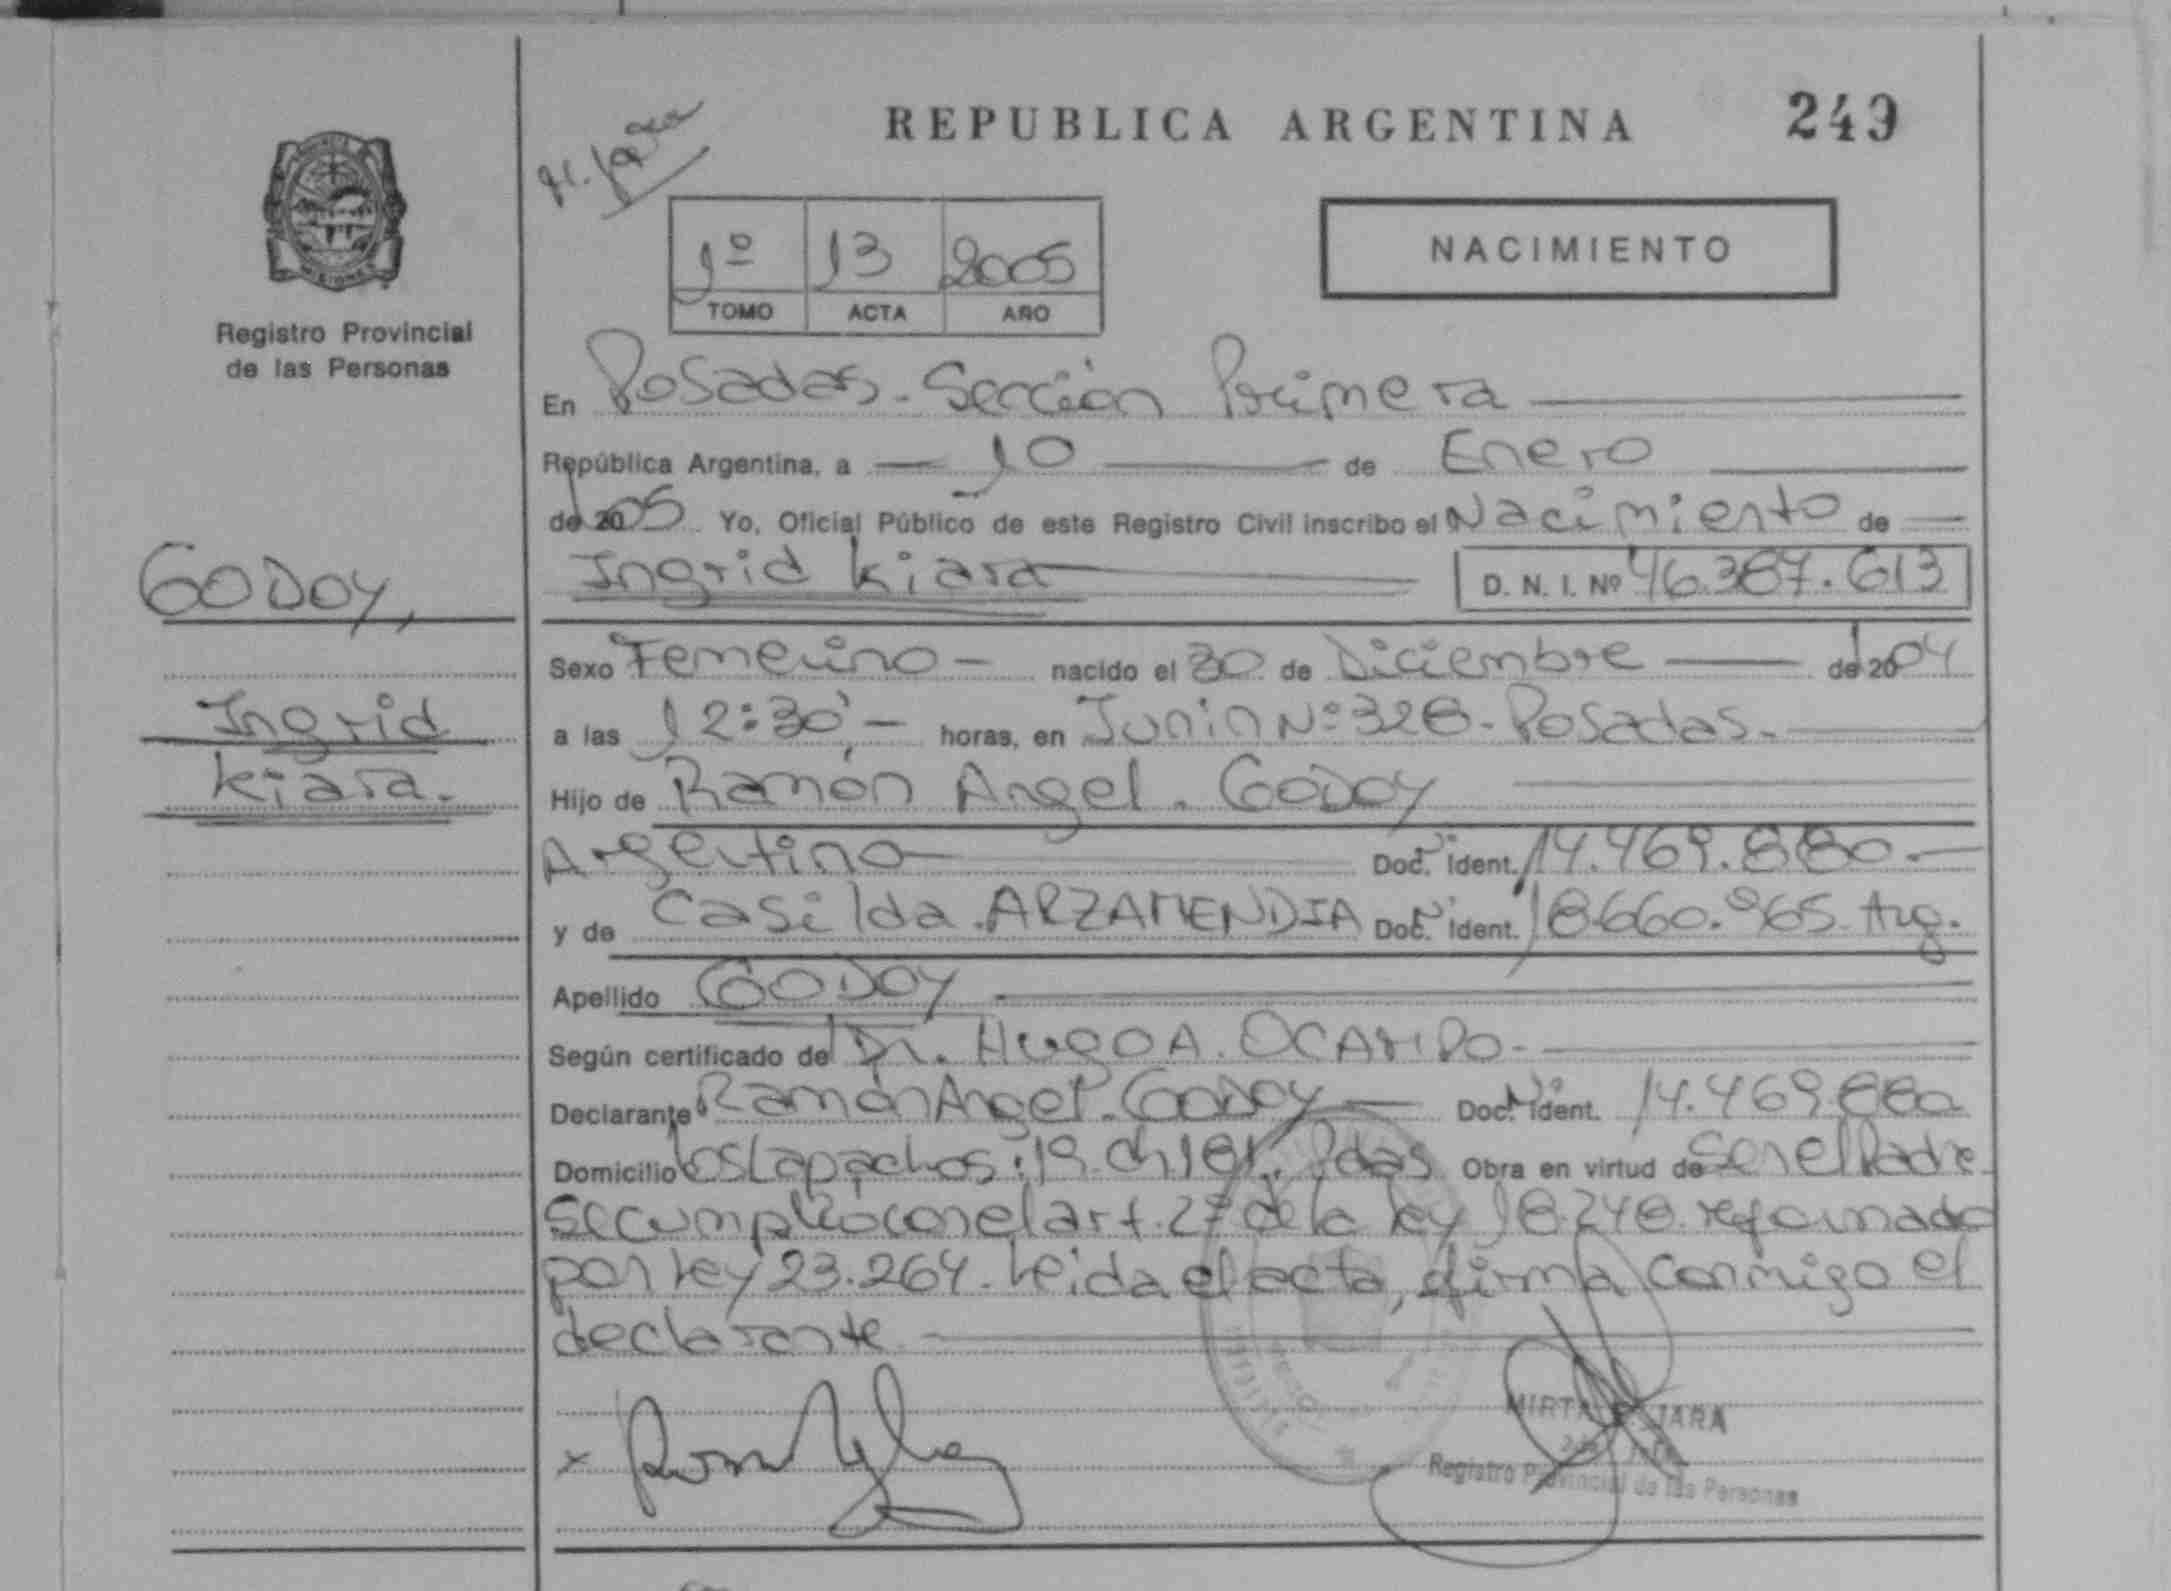 REPUBLICA ARGENTINA 249
NACIMIENTO
1º 13 2005
TOMO ACTA AÑO
MISIONES
Registro Provincial
de las Personas
En Posadas. Sección Primera
República Argentina, a 10 de Enero
de 2005 Yo, Oficial Público de este Registro Civil inscribo el Nacimiento de
GODOY,
Ingrid Kiara D. N. I. Nº 46.387.613
Sexo Femenino nacido el 30 de Diciembre de 2004
Ingrid
a las 12:30', horas, en Junin Nº 328. Posadas.
Kiara.
Hijo de Ramón Angel. GODOY
Argentino Doc. Ident. 14.469.880.
y de Casilda. ARZAMENDIA Doc. Ident. 18660.965. Arg.
Apellido GODOY
Según certificado del Dr. HUGO A. OCAMPO.
Declarante Ramón Angel. GODOY Doc. Ident. 14.469.880
Domicilio Los Lapachos: 19. ch 181. Pdas Obra en virtud de Ser el Padre
Se cumplio con el art. 2º de la ley 18.248. reformado
por ley 23.264. Leida el acta, firma conmigo el
declarante.
x
MIRTA JARA
Registro Provincial de las Personas